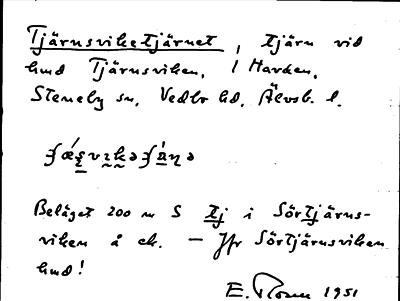 Tjärnsviketjärnet, tjärn vid
hmd Tjärnsviken, i Havden,
Steneby sn, Vedbo hd, Älvsb. l.
Beläget 200 m S tj i Sörtjärns-
viken å ek. — Jfr Sörtjärnsviken
hmd!
E. 1951